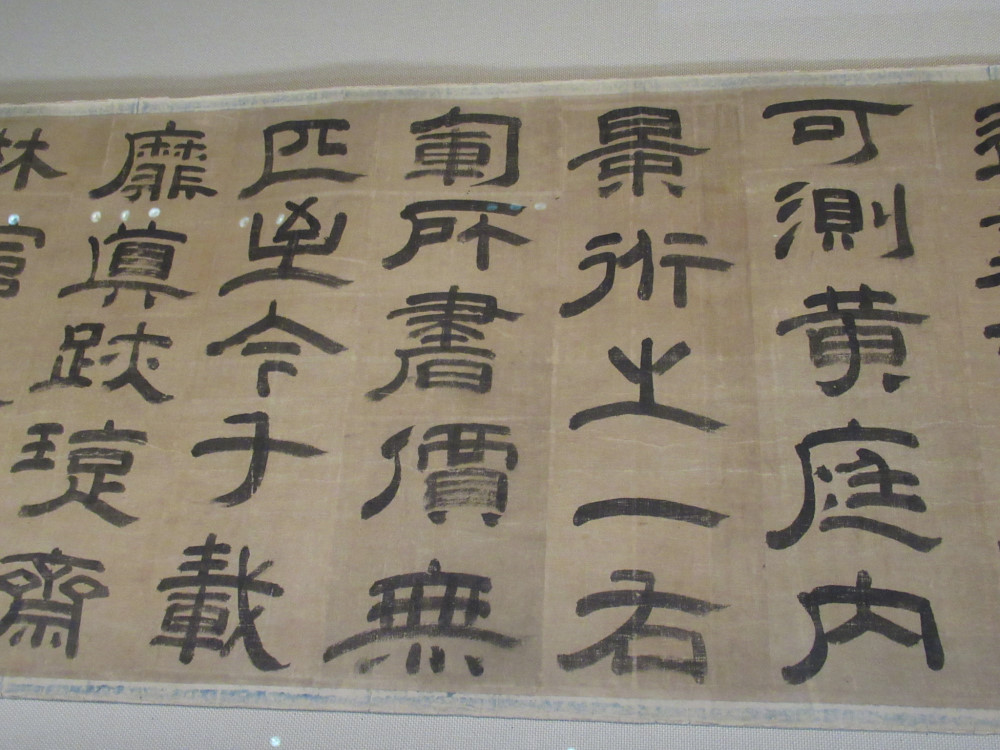 可測黃庭內
景術之一右
軍所書價無
匹今千載
靡真跡齋
林